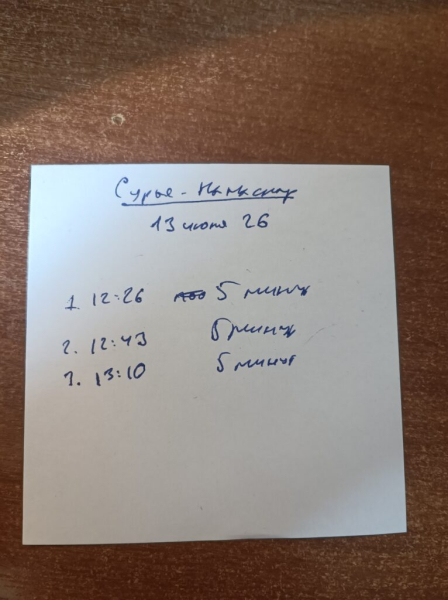 Сурье-Намаскар
13 июня 26
1. 12:26 5 минут
2. 12:43 5 минут
3. 13:10 5 минут